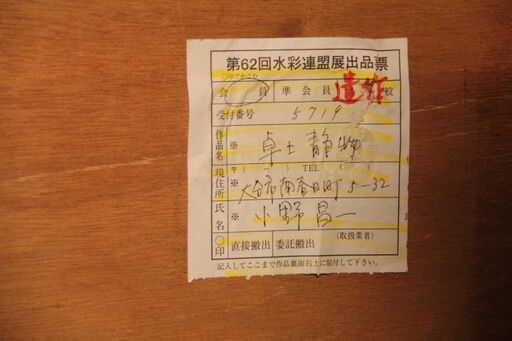 第62回水彩連盟展出品票
○印でかこむ
会 員 準会員 遺作 般
受付番号 5719
作品名 ※ 卓上静物
現住所 〒( ) TEL ( )
※ 大分市南春日町5-32
氏名 ※ 小野昌一
○印 直接搬出 委託搬出 (取扱業者)
記入してここまで作品裏面右上に貼付して下さい。